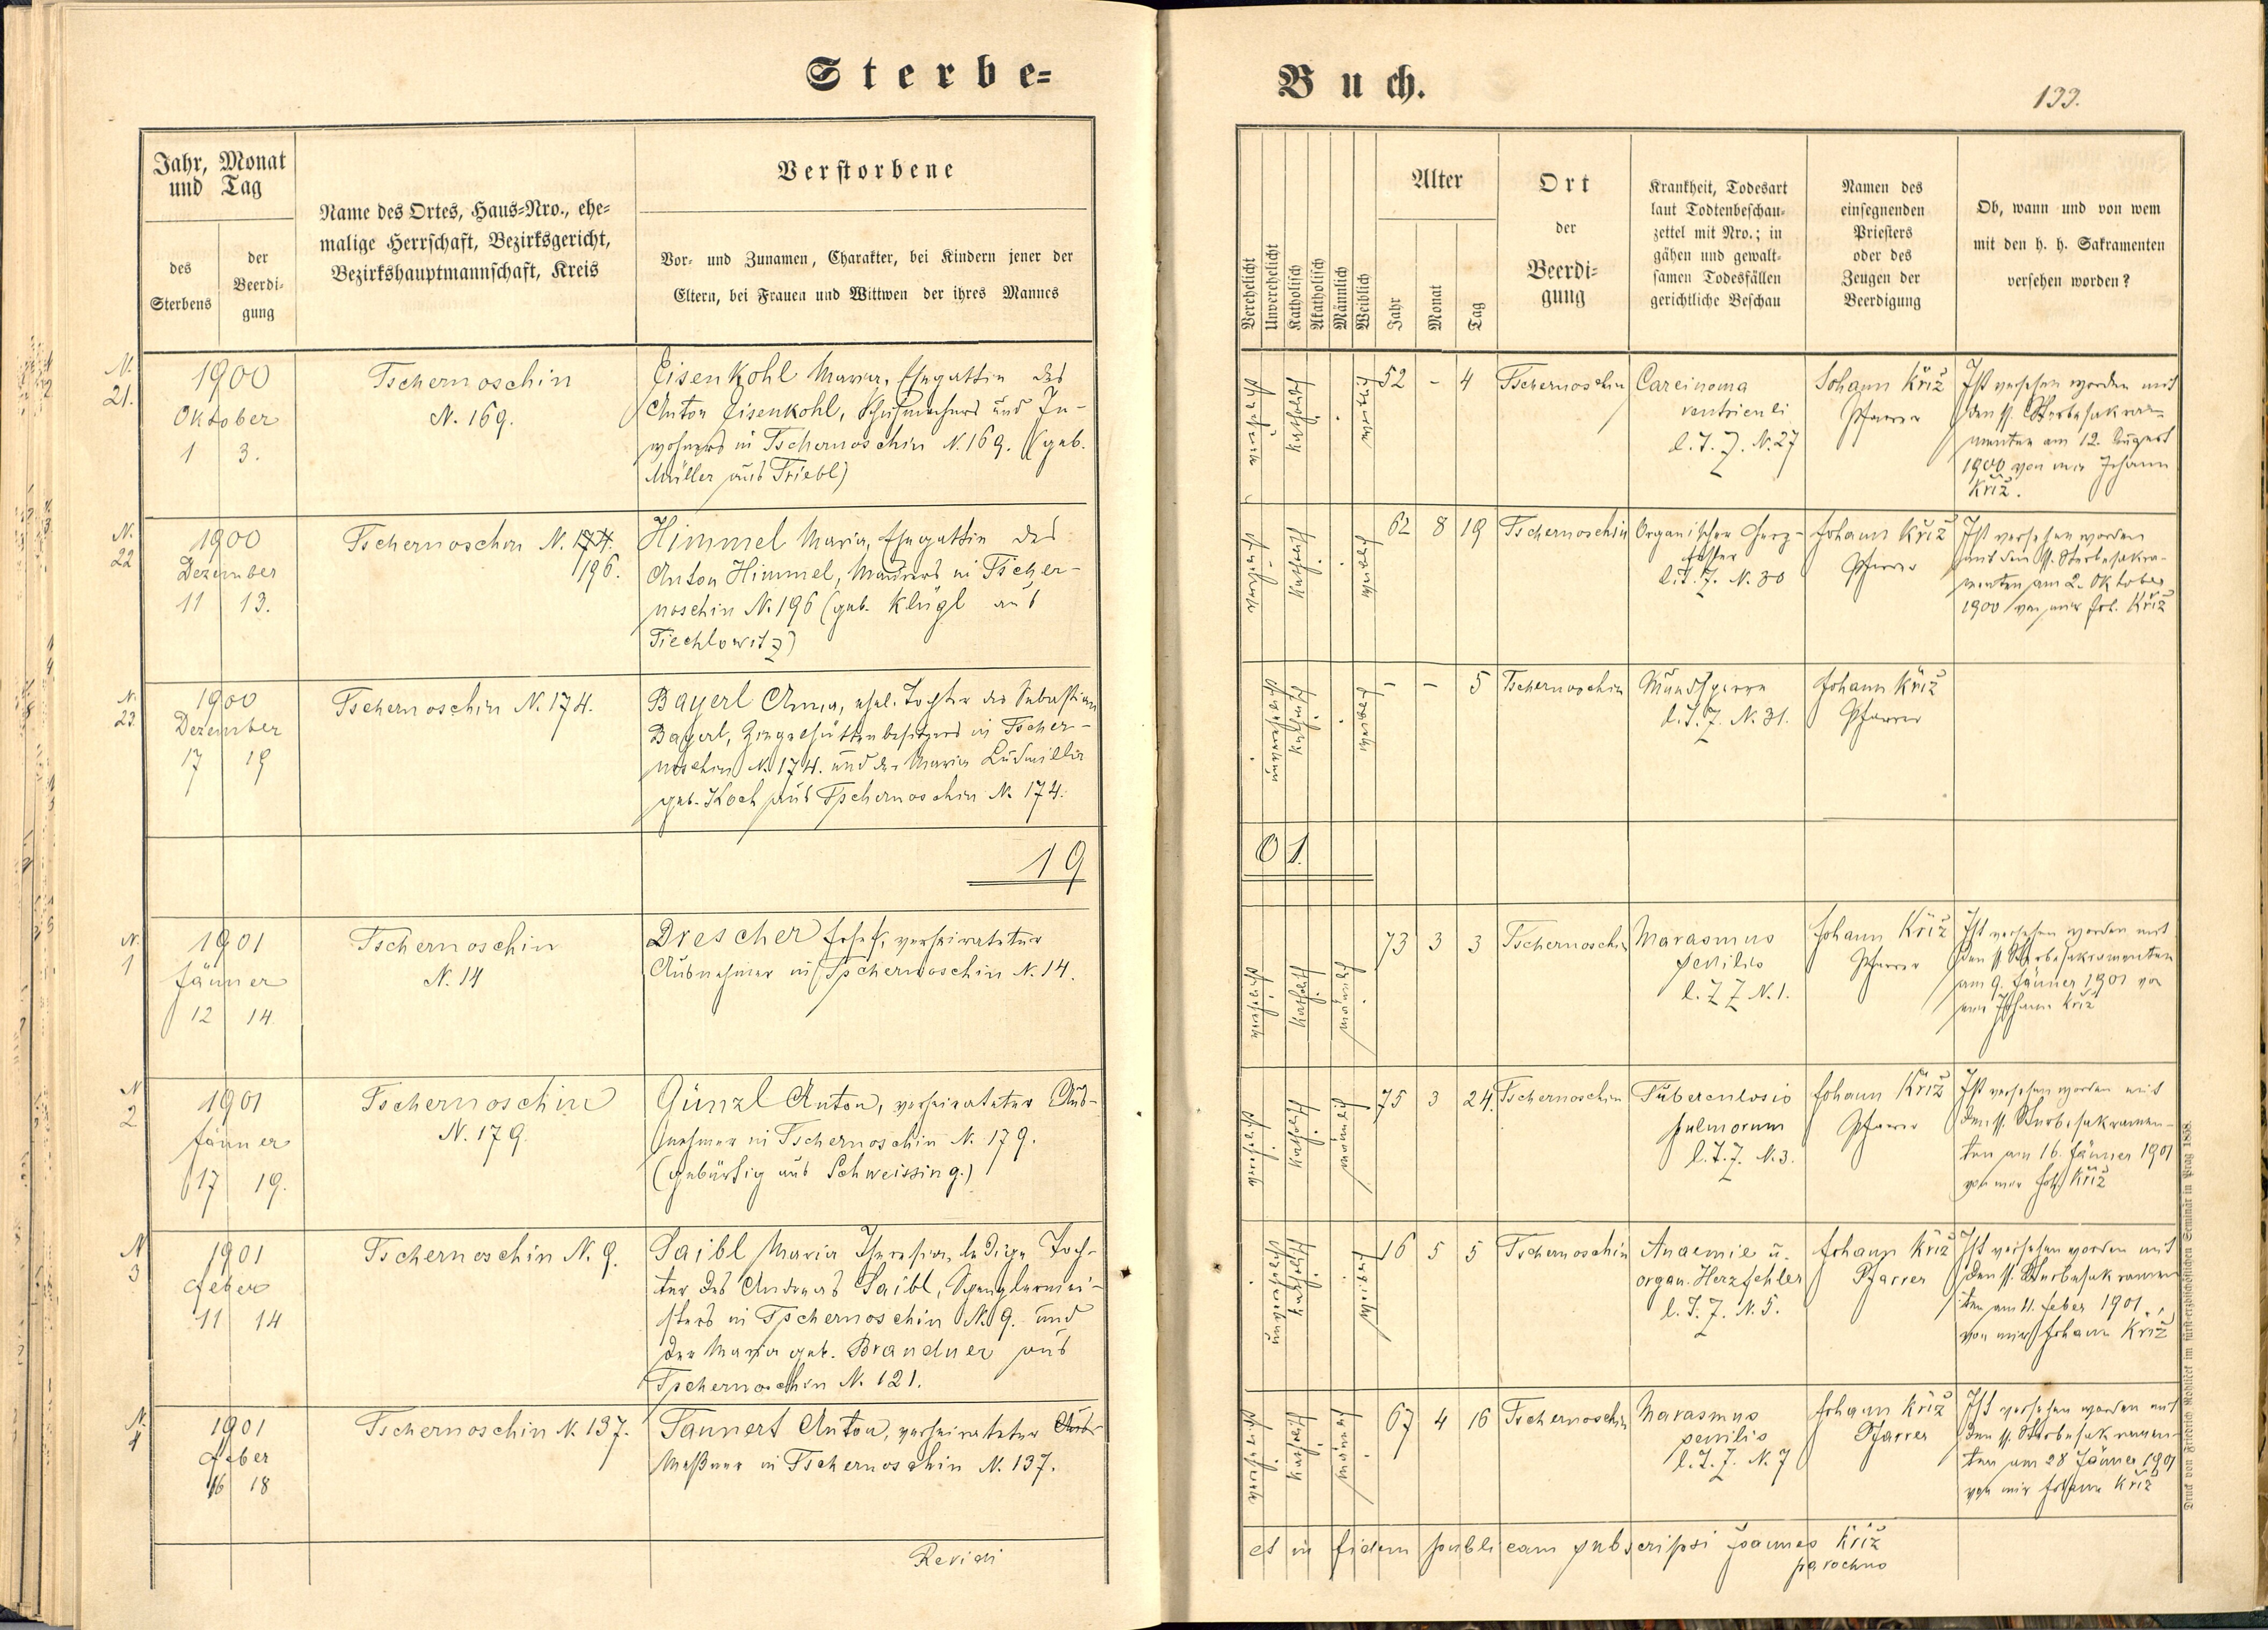 Sterbe=
Buch.
133.
Jahr, Monat
und Tag
des
Sterbens
der
Beerdi-
gung
Name des Ortes, Haus=Nro., ehe=
malige Herrschaft, Bezirksgericht,
Bezirkshauptmannschaft, Kreis
Verstorbene
Vor- und Zunamen, Charakter, bei Kindern jener der
Eltern, bei Frauen und Wittwen der ihres Mannes
Verehelicht
Unverehelicht
Katholisch
Akatholisch
Männlich
Weiblich
Alter
Jahr
Monat
Tag
Ort
der
Beerdi-
gung
Krankheit, Todesart
laut Todtenbeschau-
zettel mit Nro.; in
gähen und gewalt-
samen Todesfällen
gerichtliche Beschau
Namen des
einsegnenden
Priesters
oder des
Zeugen der
Beerdigung
Ob, wann und von wem
mit den h. h. Sakramenten
versehen worden?
N. 21.
1900
Oktober
1 3.
Tschernoschin
N. 169.
Eisenkohl Maria, Ehegattin des
Anton Eisenkohl, Schuhmachers und In-
wohners in Tschernoschin N. 169. (geb.
Müller aus Triebl)
verehelicht
katholisch
weiblich
52 - 4
Tschernoschin
Carcinoma
ventriculi
l. T. Z. N. 27
Johann Křiž
Pfarrer
Ist versehen worden mit
den hl. Sterbesakra-
menten am 12. August
1900 von mir Johann
Křiž.
N. 22
1900
Dezember
11 13.
Tschernoschin N. 174.
196.
Himmel Maria, Ehegattin des
Anton Himmel, Maurers in Tscher-
noschin N. 196 (geb. Klügl aus
Tiechlowitz)
verehelicht
katholisch
weiblich
62 8 19
Tschernoschin
Organischer Herz-
fehler
l. T. Z. N. 30
Johann Křiž
Pfarrer
Ist versehen worden
mit den hl. Sterbesakra-
menten am 2. Oktober
1900 von mir Joh. Křiž
N. 23.
1900
Dezember
17 19
Tschernoschin N. 174.
Bayerl Anna, ehel. Tochter des Sebastian
Bayerl, Ziegelhüttenbesitzers in Tscher-
noschin N. 174. und der Maria Ludmilla
geb. Koch aus Tschernoschin N. 174.
unverehelicht
katholisch
weiblich
- - 5
Tschernoschin
Mundsperre
l. T. Z. N. 31.
Johann Křiž
Pfarrer
19
01.
N. 1
1901
Jänner
12 14.
Tschernoschin
N. 14
Drescher Josef, verheirateter
Ausnehmer in Tschernoschin N. 14.
verehelicht
katholisch
männlich
73 3 3
Tschernoschin
Marasmus
senilis
l. T. Z. N. 1.
Johann Křiž
Pfarrer
Ist versehen worden mit
den hl. Sterbesakramenten
am 9. Jänner 1901 von
mir Johann Křiž
N 2
1901
Jänner
17 19.
Tschernoschin
N. 179.
Günzl Anton, verheirateter Aus-
nehmer in Tschernoschin N. 179.
(gebürtig aus Schweissing.)
verehelicht
katholisch
männlich
75 3 24.
Tschernoschin
Tuberculosis
pulmorum
l. T. Z. N. 3.
Johann Křiž
Pfarrer
Ist versehen worden mit
den hl. Sterbesakramen-
ten am 16. Jänner 1901
von mir Joh. Křiž
N 3
1901
Feber
11 14
Tschernoschin N. 9.
Saibl Maria Theresia, ledige Toch-
ter des Andreas Saibl, Spenglermei-
sters in Tschernoschin N. 9. und
der Maria geb. Brandner aus
Tschernoschin N. 121.
unverehelicht
katholisch
weiblich
16 5 5
Tschernoschin
Anaemie u.
organ. Herzfehler
l. T. Z. N. 5.
Johann Křiž
Pfarrer
Ist versehen worden mit
den hl. Sterbesakramen
ten am 11. Feber 1901.
von mir Johann Křiž
N. 4
1901
Feber
16 18
Tschernoschin N. 137.
Tannert Anton, verheirateter Aus-
Meßner in Tschernoschin N. 137.
verehelicht
katholisch
männlich
67 4 16
Tschernoschin
Marasmus
senilis
l. T. Z. N. 7
Johann Křiž
Pfarrer
Ist versehen worden mit
den hl. Sterbesakramen-
ten am 28 Jänner 1901
von mir Johann Křiž
Revidi
et in fidem publicam subscripsi Joannes Křiž
parochus
Druck von Friedrich Rohliček im fürst-erzbischöflichen Seminär in Prag 1858.